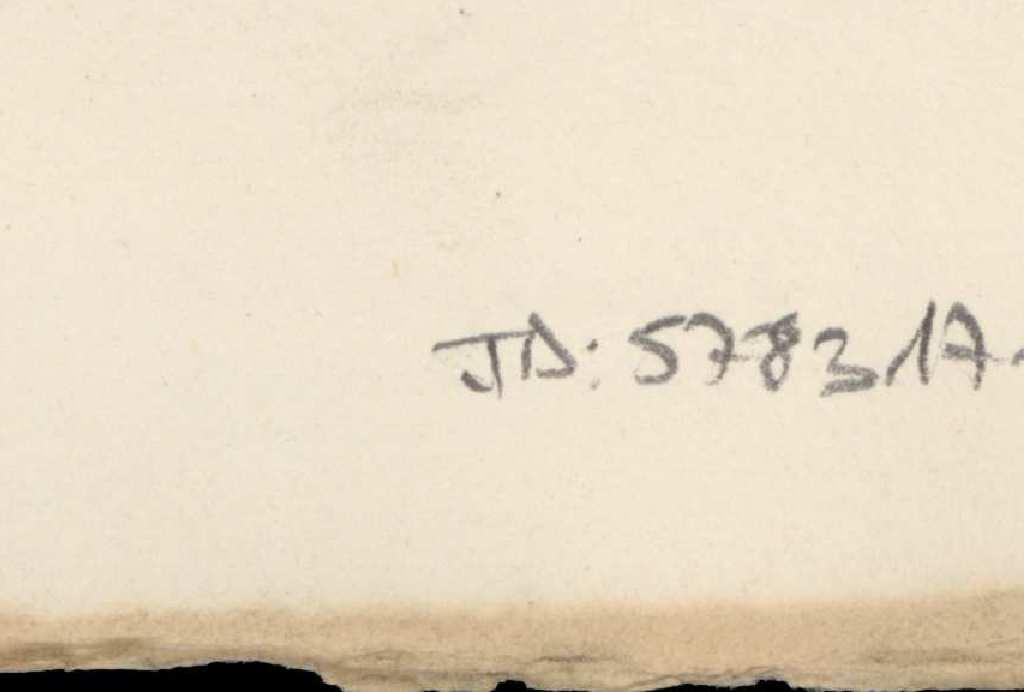 JD: 578317-